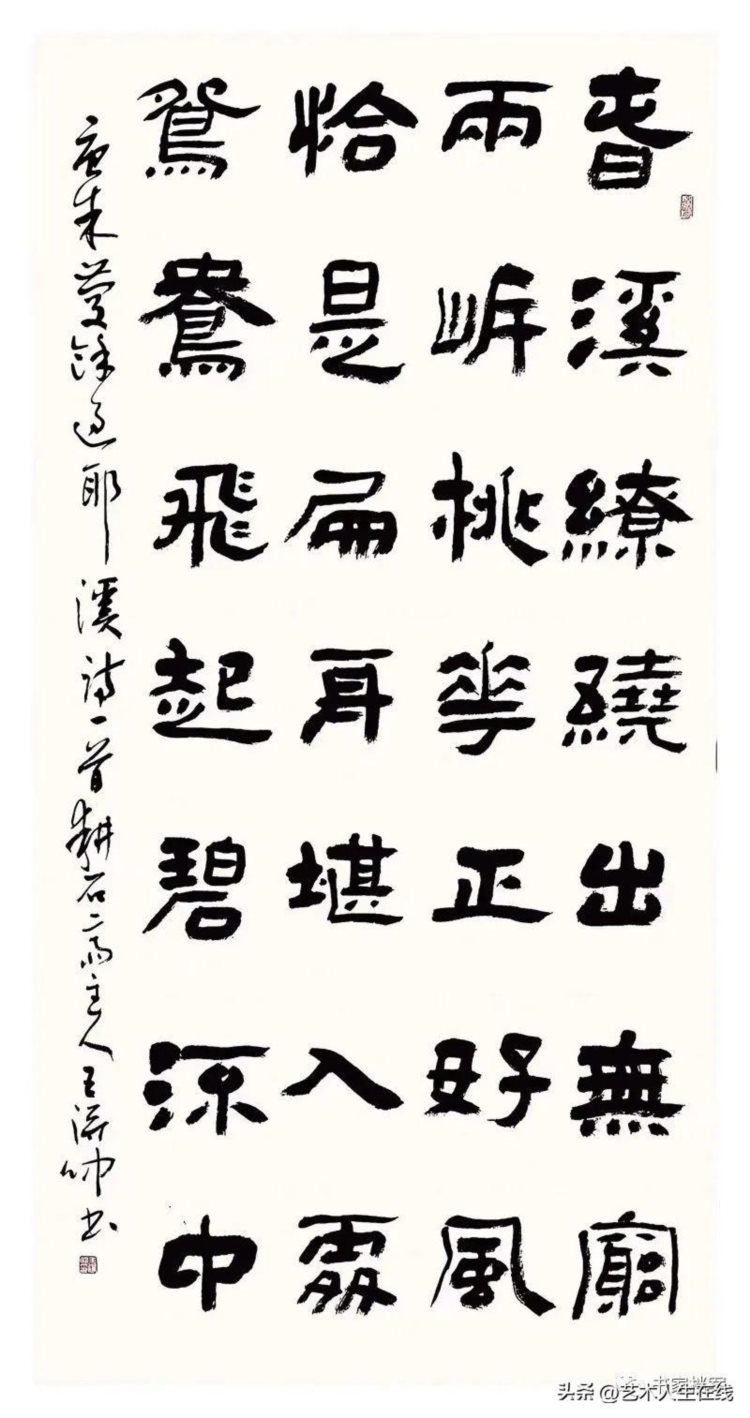 春溪繚繞出無窮
兩岸桃花正好風
恰是扁舟堪入處
鴛鴦飛起碧流中
唐朱慶餘過耶溪詩一首耕石齋主人王書
书家档案
头条 @艺术人生在线